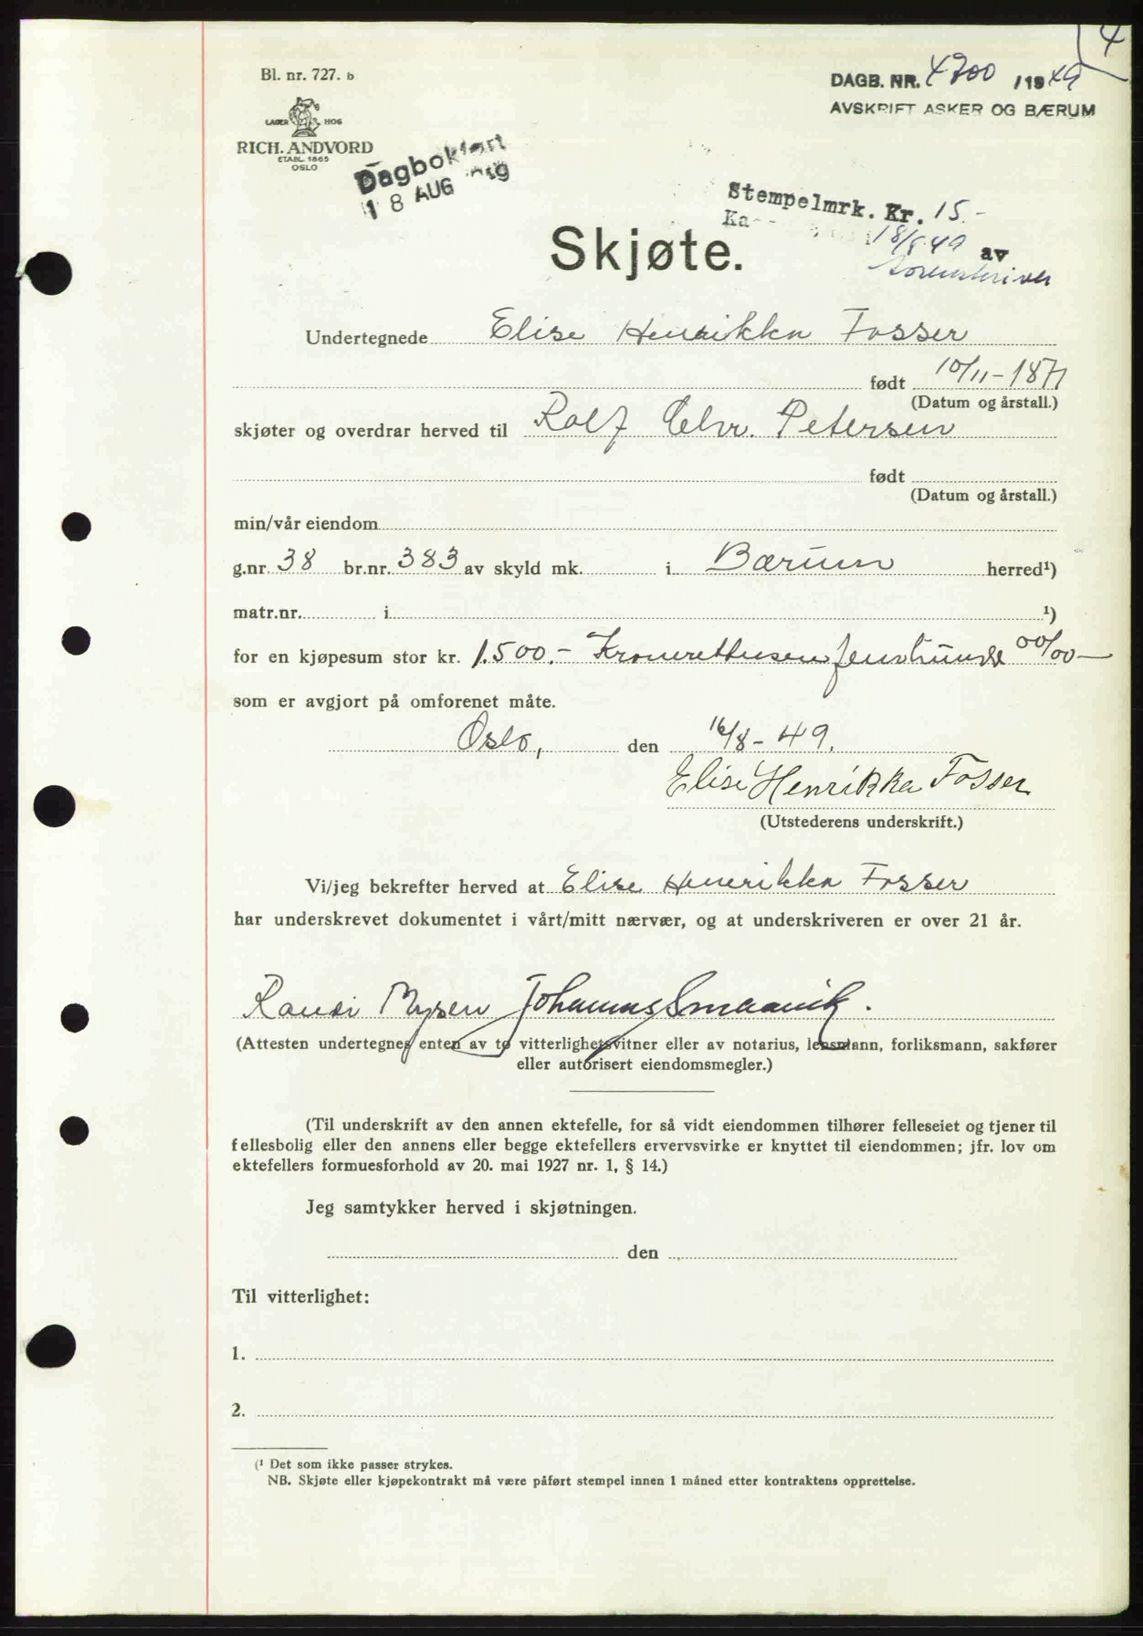 4
Bl. nr. 727. b
DAGB. NR. 4700 /1949
AVSKRIFT ASKER OG BÆRUM
LAGER HOS
RICH. ANDVORD
ETABL. 1865
OSLO
Dagbokført
18 AUG
Stempelmrk. Kr. 15.-
18/8 49 av
Sorenskriver
Skjøte.
Undertegnede Elise Henrikka Fosser
født 10/11-1871
(Datum og årstall.)
skjøter og overdrar herved til Rolf Chr. Petersen
født
(Datum og årstall.)
min/vår eiendom
g.nr. 38 br.nr. 383 av skyld mk. i Bærum herred¹)
matr.nr. i ¹)
for en kjøpesum stor kr. 1.500.- Kronerettusenfemhundre 00/00-
som er avgjort på omforenet måte.
Oslo, den 16/8-49.
Elise Henrikka Fosser
(Utstederens underskrift.)
Vi/jeg bekrefter herved at Elise Henrikka Fosser
har underskrevet dokumentet i vårt/mitt nærvær, og at underskriveren er over 21 år.
Randi Mysen Johannes Smaavik.
(Attesten undertegnes enten av to vitterlighetsvitner eller av notarius, lensmann, forliksmann, sakfører
eller autorisert eiendomsmegler.)
(Til underskrift av den annen ektefelle, for så vidt eiendommen tilhører felleseiet og tjener til
fellesbolig eller den annens eller begge ektefellers ervervsvirke er knyttet til eiendommen; jfr. lov om
ektefellers formuesforhold av 20. mai 1927 nr. 1, § 14.)
Jeg samtykker herved i skjøtningen.
den
Til vitterlighet:
1.
2.
(¹ Det som ikke passer strykes.
NB. Skjøte eller kjøpekontrakt må være påført stempel innen 1 måned etter kontraktens opprettelse.